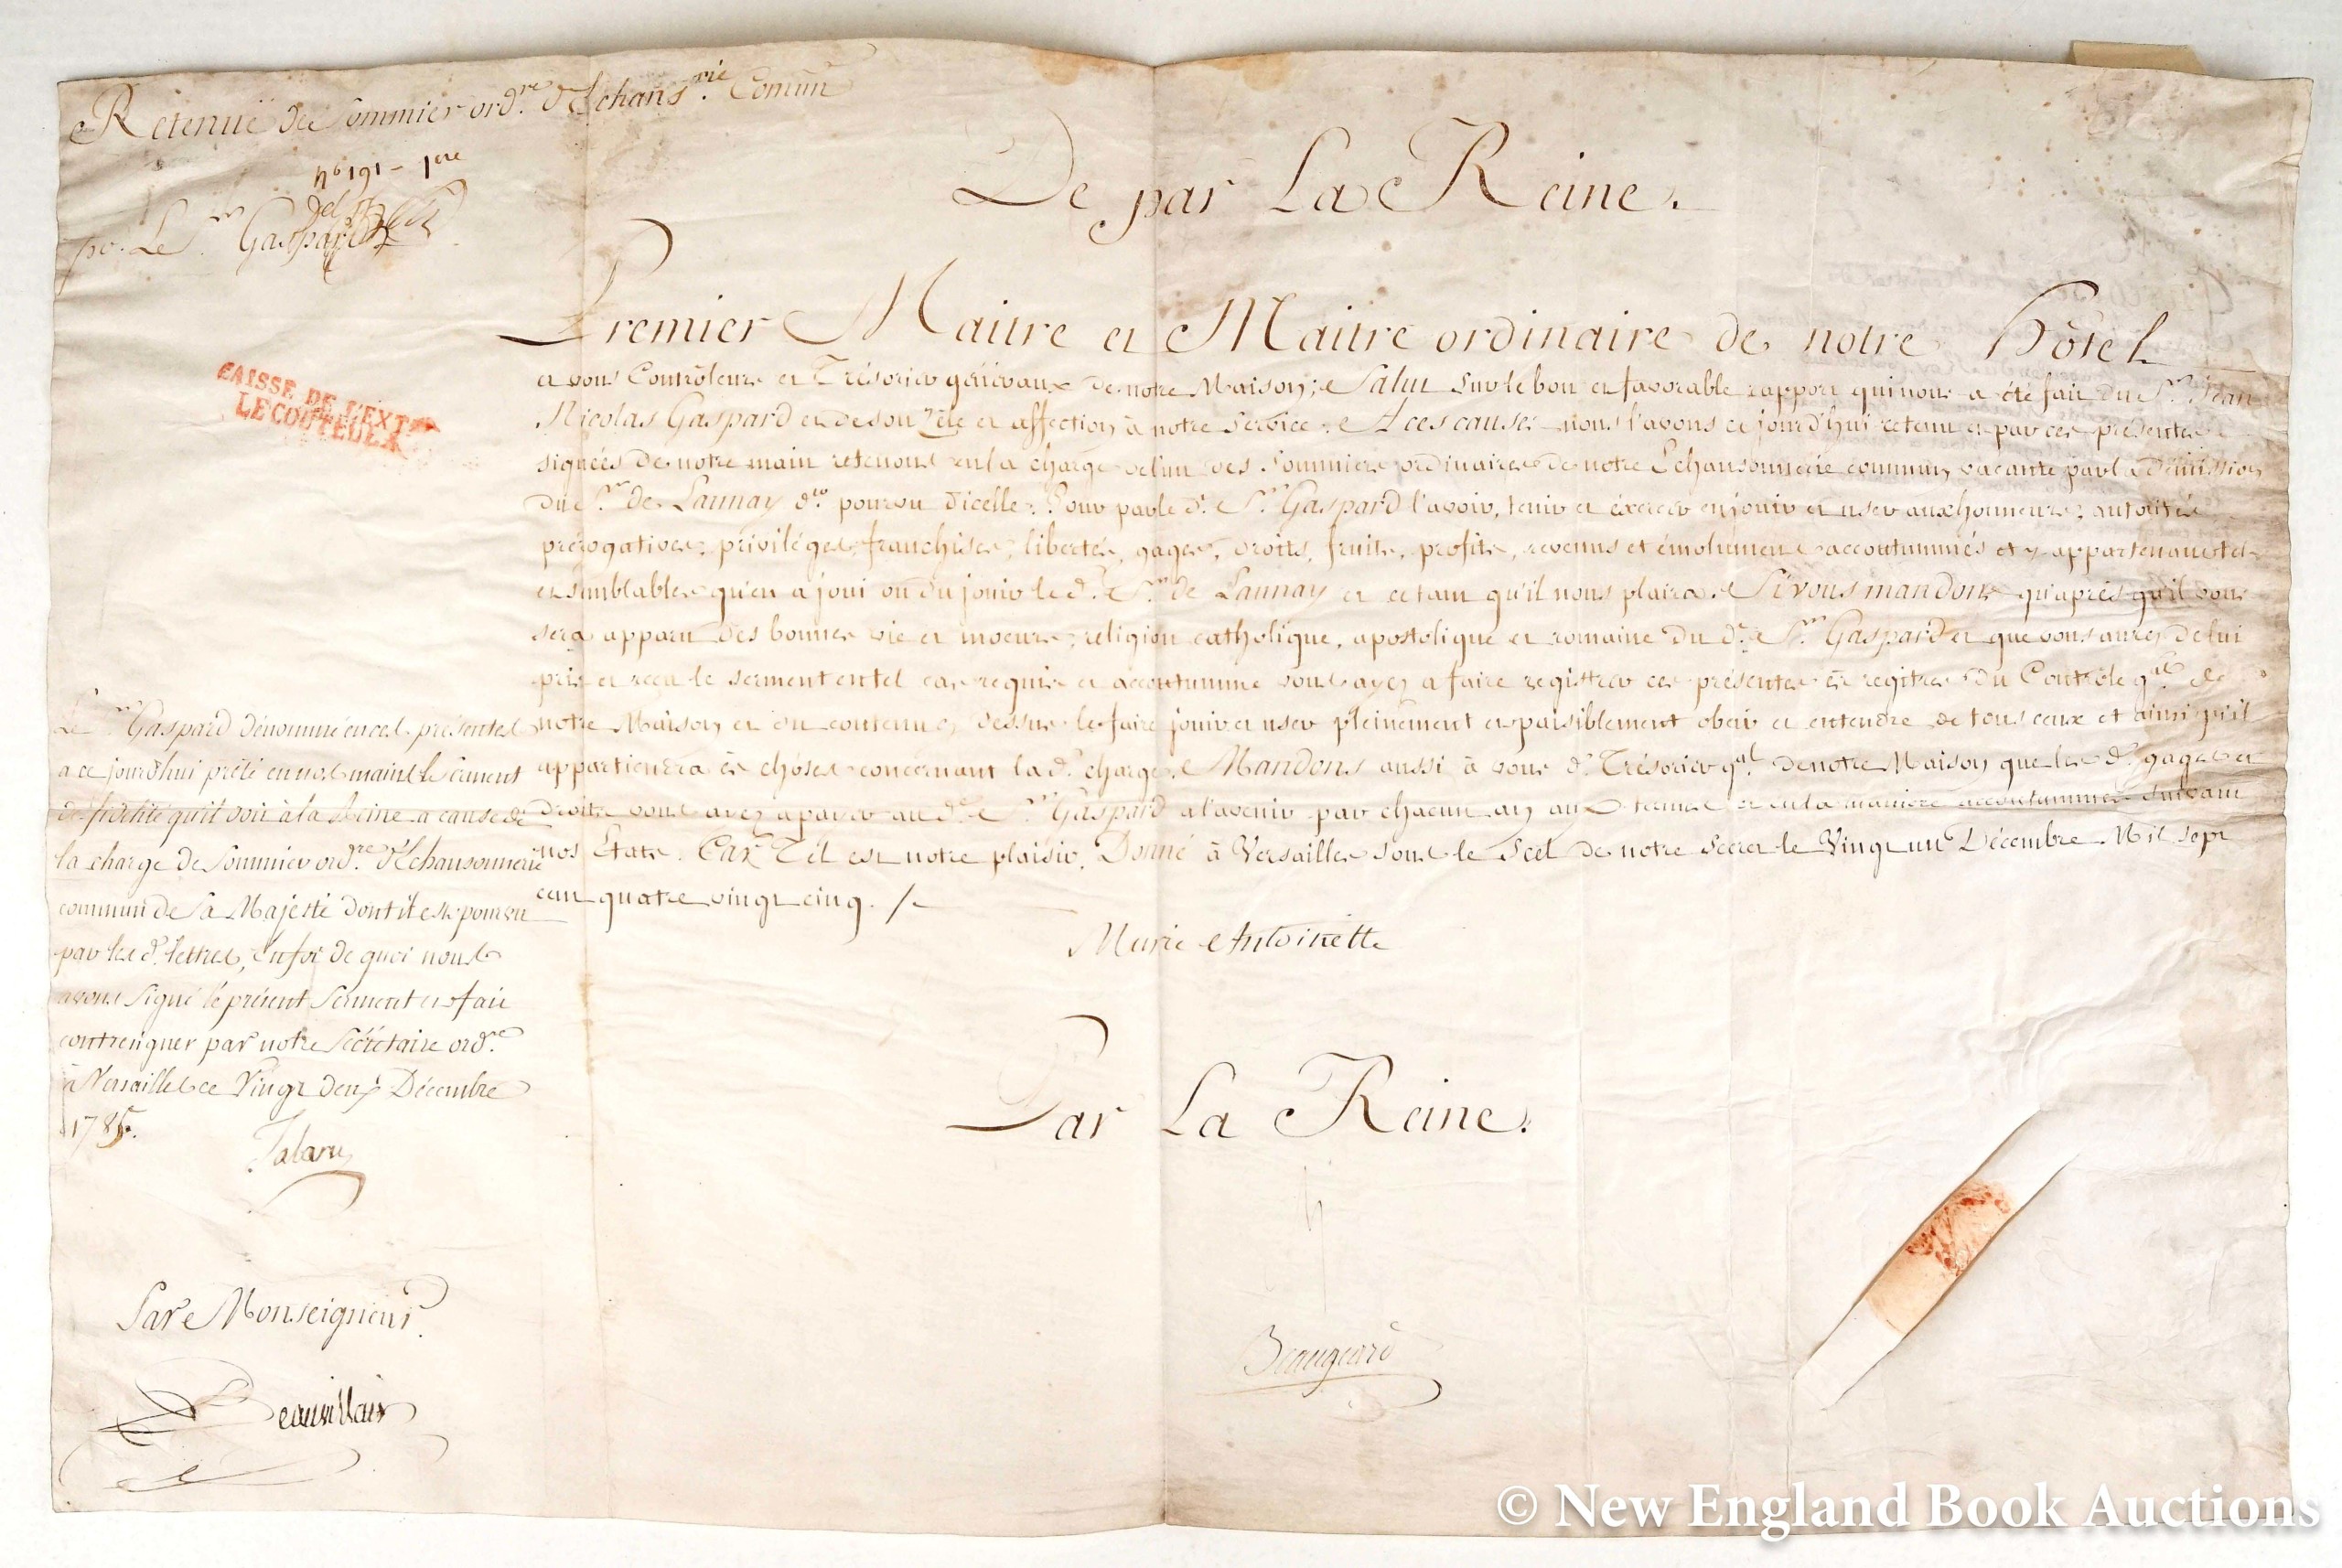 Retenuë de Sommier ord.re d'Echans.rie Comun
po. Le S.r Gaspard
CAISSE DE L'EXT
LECOUTEULX
De par La Reine.
Premier Maitre et Maitre ordinaire de notre Hôtel
et vous Contrôleurs et Trésorier generaux de notre Maison; Salut Sur le bon et favorable rapport qui nous a été fait du S.r Jean
Nicolas Gaspard et de son zèle et affection à notre Service. A ces causes nous l'avons ce jourd'hui retenu et par ces présentes
signées de notre main retenons en la charge de l'un des Sommiers ordinaires de notre Echansonnerie commun, vacante par la démission
du S.r de Launay d.er pourvu d'icelle. Pour par le d. S.r Gaspard l'avoir, tenir et éxercer en jouir et user aux honneurs, autorités
prérogatives, priviléges, franchises, libertés, gages, droits, fruits, profits, revenus et émolumens accoutummés et y appartenans tels
et semblables qu'en a joui ou du jouir le d. S.r de Launay et ce tant qu'il nous plaira. Si vous mandons qu'après qu'il vous
sera apparu des bonnes vie et moeurs, religion catholique, apostolique et romaine du d. S.r Gaspard et que vous aurez de lui
pris et reçu le serment en tel cas requis et accoutummé vous ayez a faire registrer ces présentes ès registres du Contrôle g.ral de
notre Maison et du contenu cy dessus le faire jouir et user pleinement et paisiblement obeir et entendre de tous ceux et ainsi qu'il
appartiendra ès choses concernant la d. charge. Mandons aussi à vous d. Trésorier g.ral de notre Maison que les d. gages et
droits vous ayez a payer au d. S.r Gaspard a l'avenir par chacun an aux termes et en la maniere accoutummée suivant
nos Etats. Car Tel est notre plaisir. Donné à Versailles sous le Scel de notre Secret le Vingt un Décembre Mil sept
cent quatre vingt cinq. /.
Marie Antoinette
Par La Reine.
Beaugeard
Le S.r Gaspard dénommé en ces présentes
a ce jourd'hui prêté en nos mains le Serment
de fidélité qu'il doit à la Reine a cause de
la charge de Sommier ord.re d'Echansonnerie
commun de Sa Majesté dont il est pourvu
par les d. lettres, En foi de quoi nous
avons signé le présent Serment et fait
contresigner par notre Sécrétaire ord.re
à Versailles ce Vingt deux Décembre
1785.
Talaru
Par Monseigneur.
Beauvillain
© New England Book Auctions